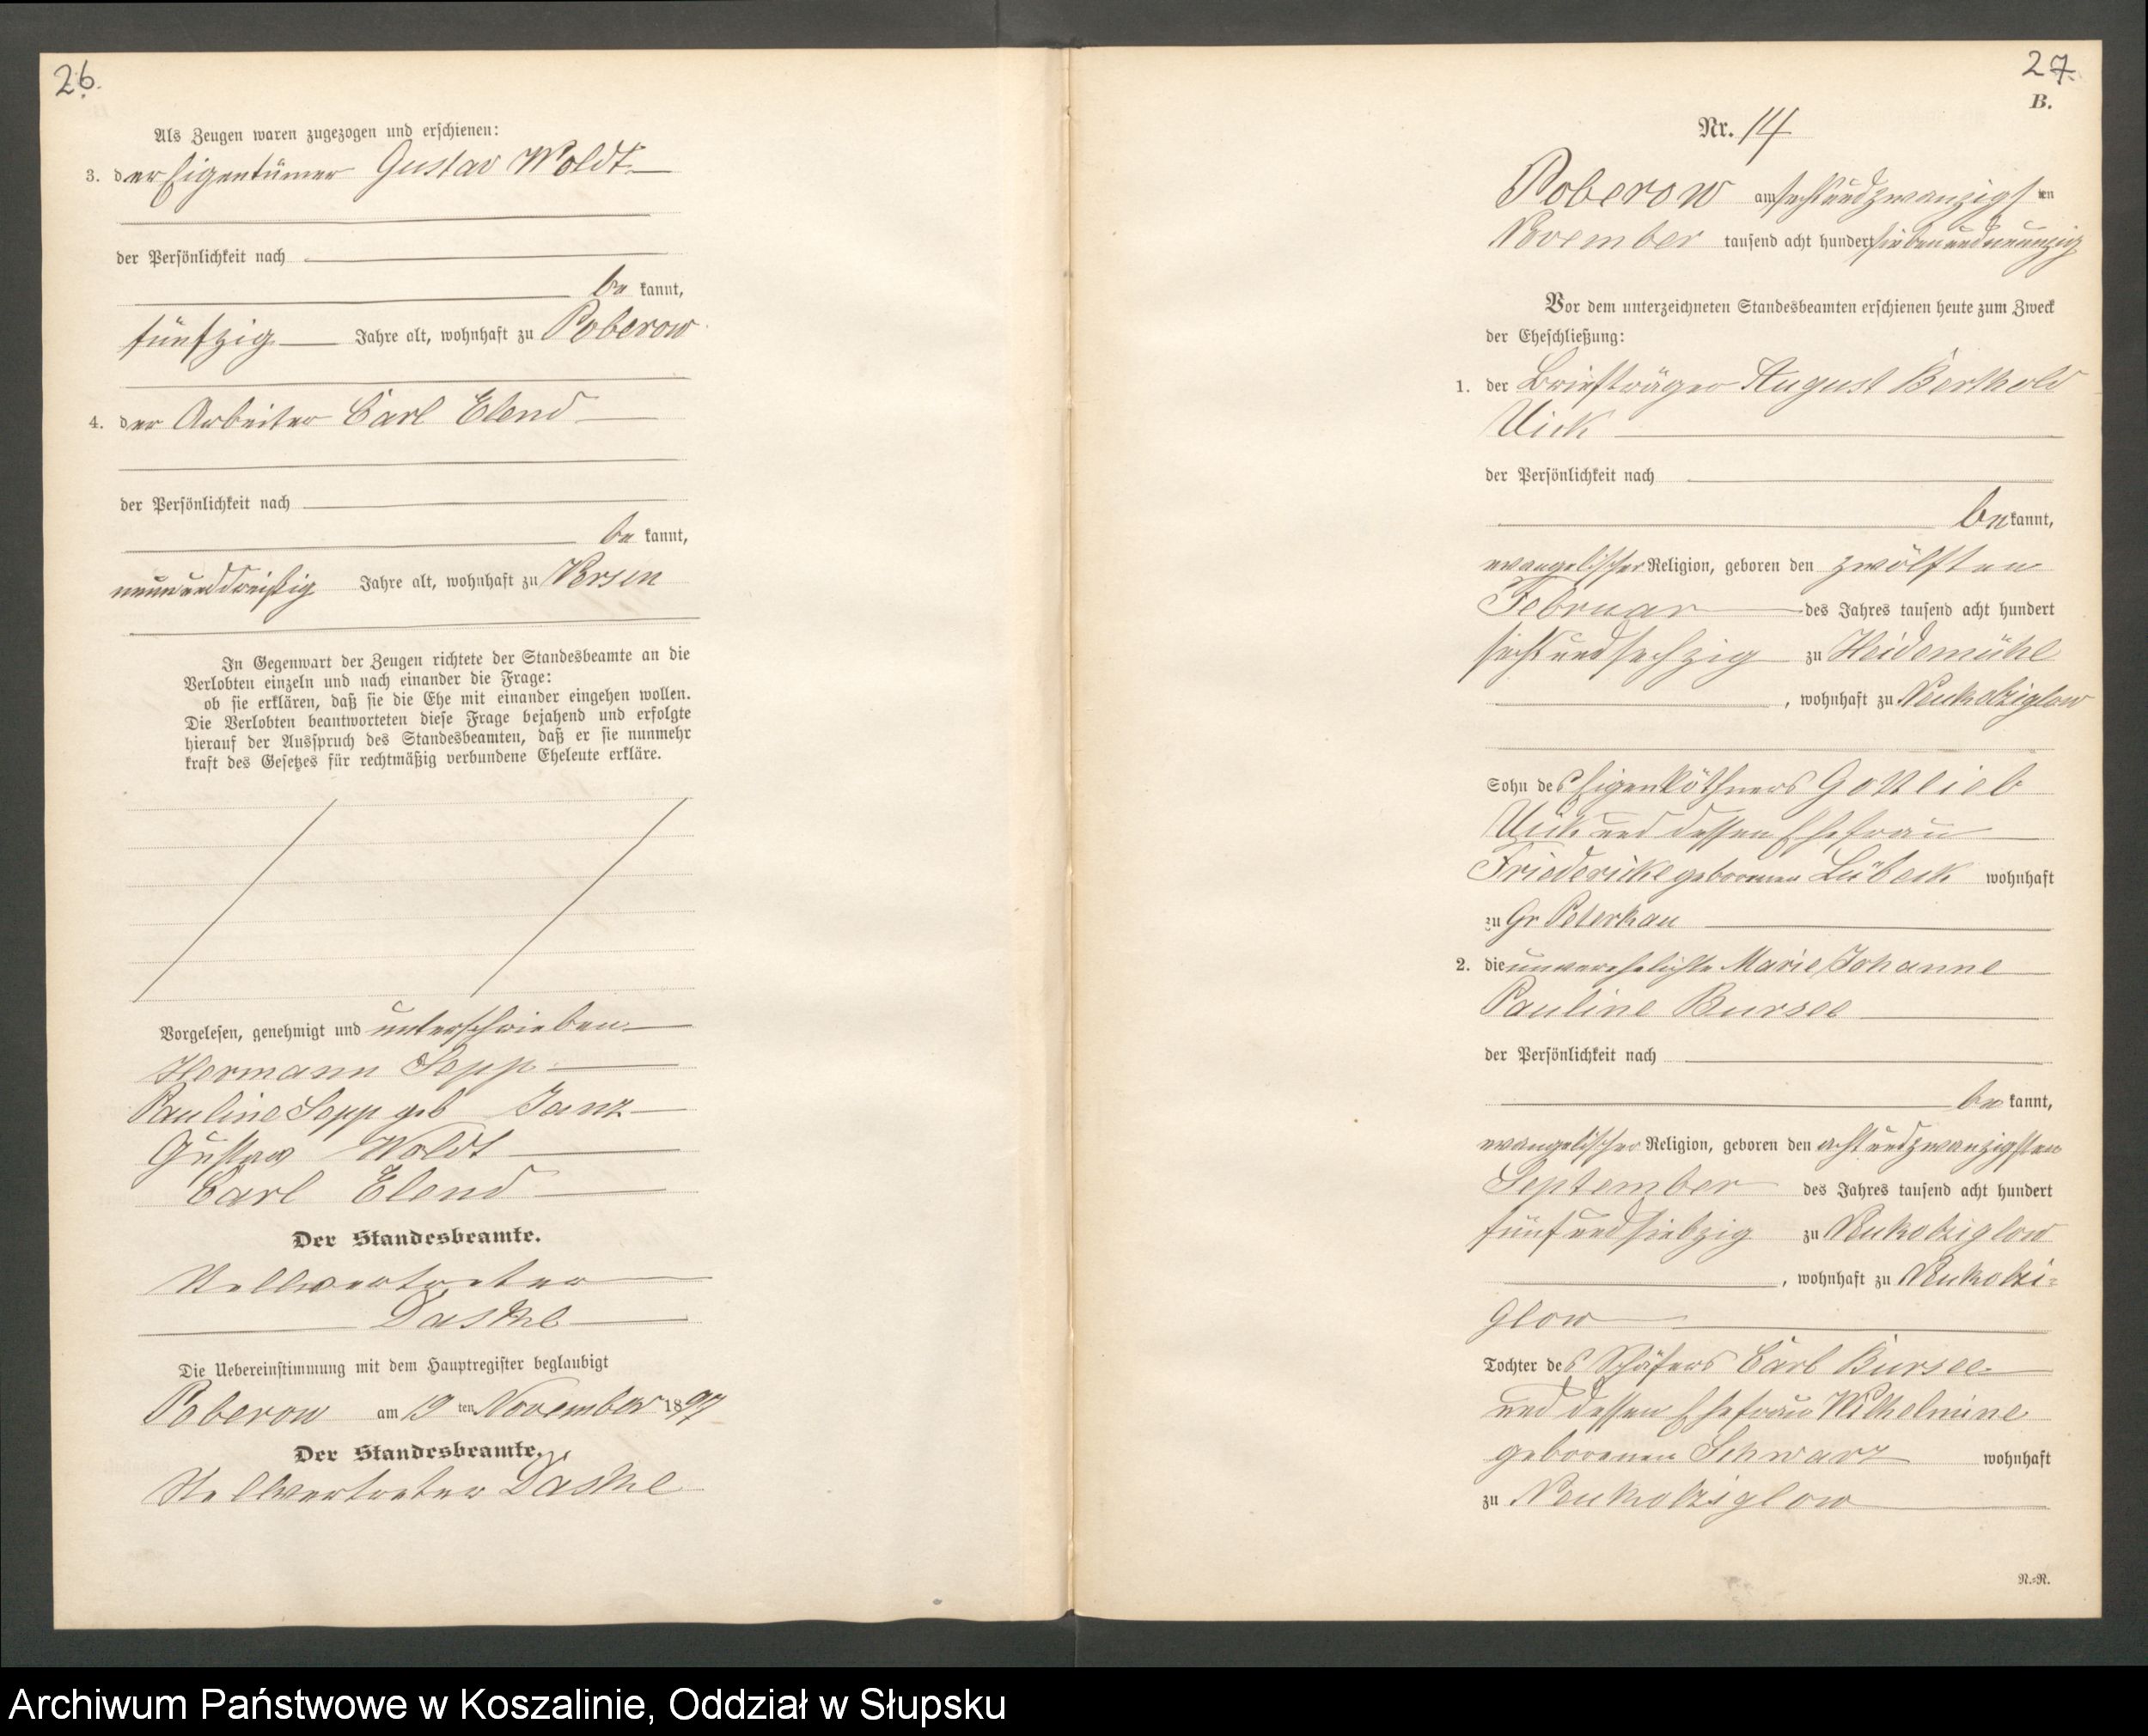 26.
Als Zeugen waren zugezogen und erschienen:
3. der Eigentümer Gustav Woldt
der Persönlichkeit nach
be kannt,
fünfzig Jahre alt, wohnhaft zu Poberow
4. der Arbeiter Carl Elend
der Persönlichkeit nach
be kannt,
neununddreißig Jahre alt, wohnhaft zu Versen
In Gegenwart der Zeugen richtete der Standesbeamte an die
Verlobten einzeln und nach einander die Frage:
ob sie erklären, daß sie die Ehe mit einander eingehen wollen.
Die Verlobten beantworteten diese Frage bejahend und erfolgte
hierauf der Ausspruch des Standesbeamten, daß er sie nunmehr
kraft des Gesetzes für rechtmäßig verbundene Eheleute erkläre.
Vorgelesen, genehmigt und unterschrieben
Hermann Sepp
Pauline Sepp geb Janz
Gustav Woldt
Carl Elend
Der Standesbeamte.
Stellvertreter
Die Uebereinstimmung mit dem Hauptregister beglaubigt
Poberow am 19 ten November 1897
Der Standesbeamte.
Stellvertreter
27.
B.
Nr. 14
Poberow am sechsundzwanzigsten
November tausend acht hundert siebenundneunzig
Vor dem unterzeichneten Standesbeamten erschienen heute zum Zweck
der Eheschließung:
1. der Briefträger August Berthold
Vick
der Persönlichkeit nach
be kannt,
evangelischer Religion, geboren den zwölften
Februar des Jahres tausend acht hundert
sechsundsechzig zu Heidemühl
, wohnhaft zu Neukolziglow
Sohn des Eigenköthners Gottlieb
Vick und dessen Ehefrau
Friedericke geborenen Lübeck wohnhaft
zu Gr Peterkau
2. die unverehelichte Marie Johanne
Pauline Bursee
der Persönlichkeit nach
be kannt,
evangelischer Religion, geboren den achtundzwanzigsten
September des Jahres tausend acht hundert
fünfundsiebzig zu Neukolziglow
, wohnhaft zu Neukolzi=
glow
Tochter des Schäfers Carl Bursee
und dessen Ehefrau Wilhelmine
geborenen Schwarz wohnhaft
zu Neukolziglow
N.=R.
Archiwum Państwowe w Koszalinie, Oddział w Słupsku